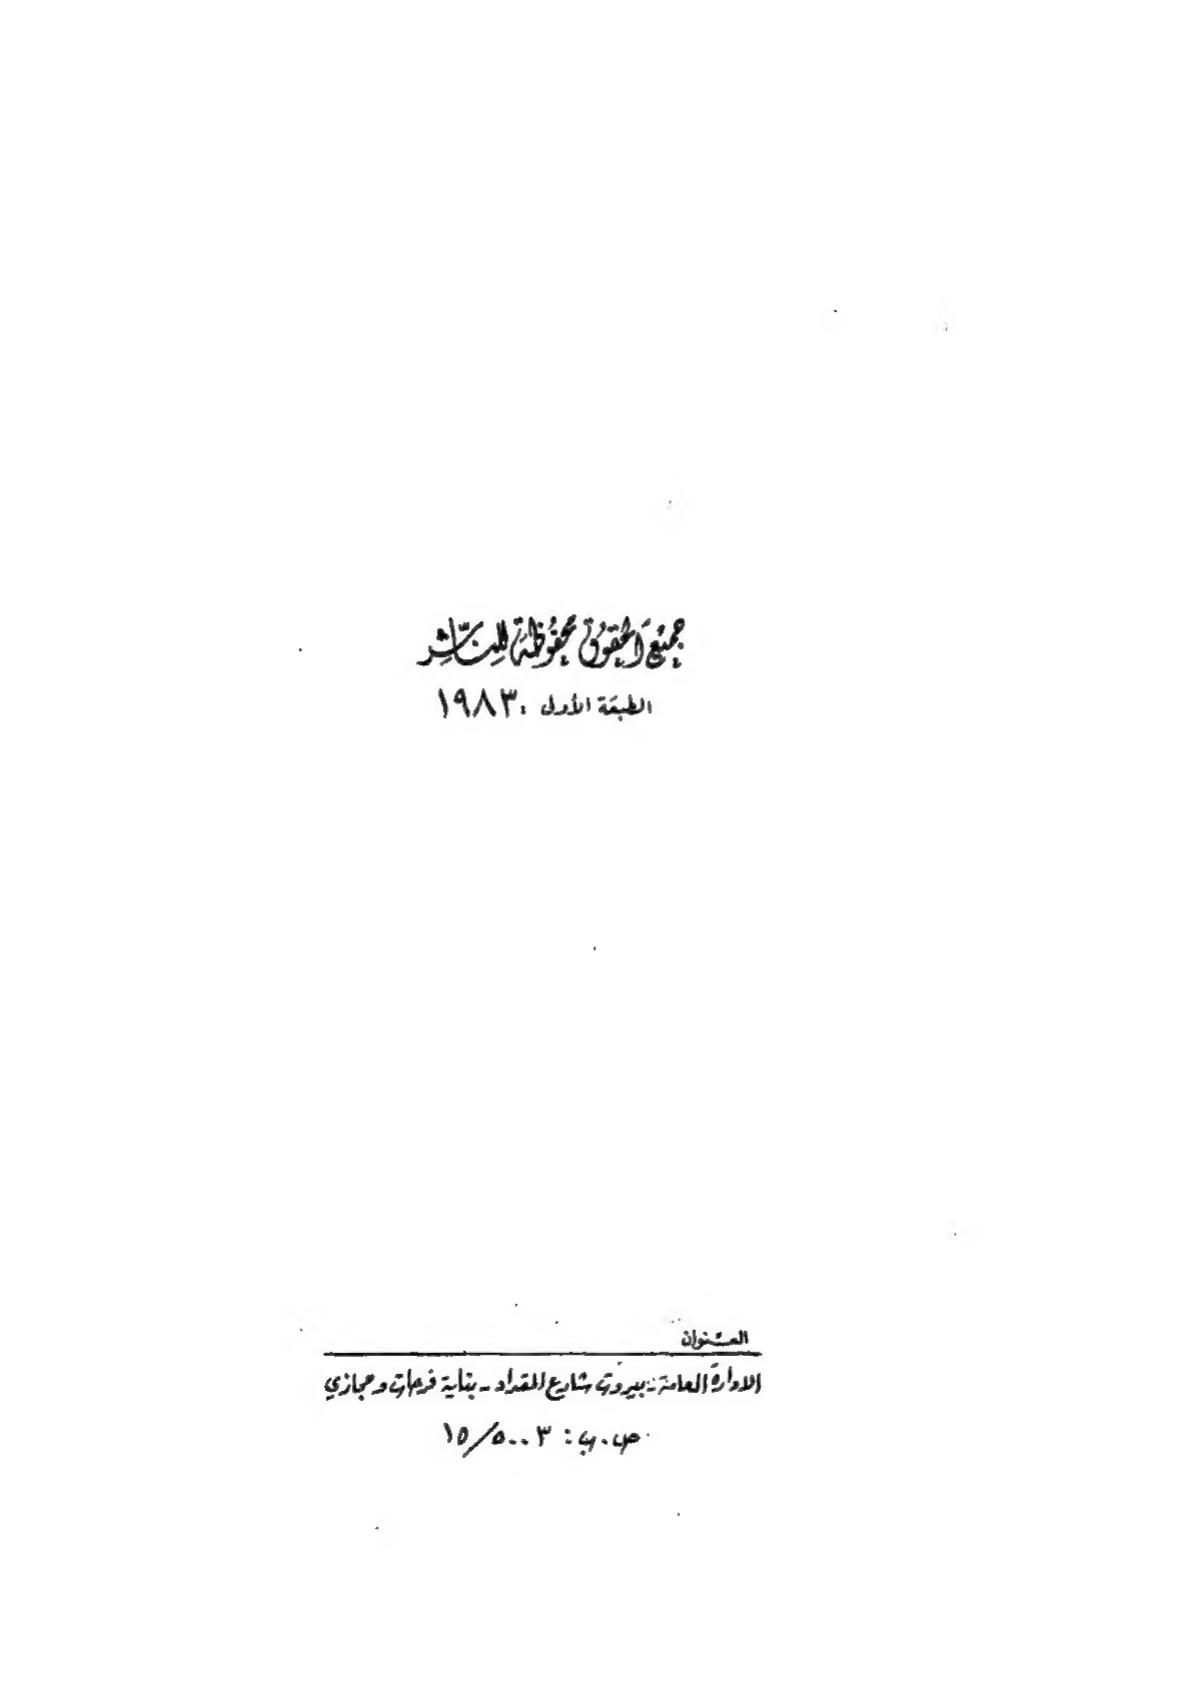 جميع الحقوق محفوظة للناشر
الطبعة الأولى : ١٩٨٣
العنوان
الادارة العامة : بيروت شارع المقداد - بناية فرحات وحجازي
ص.ب : ١٥/٥٠٠٣